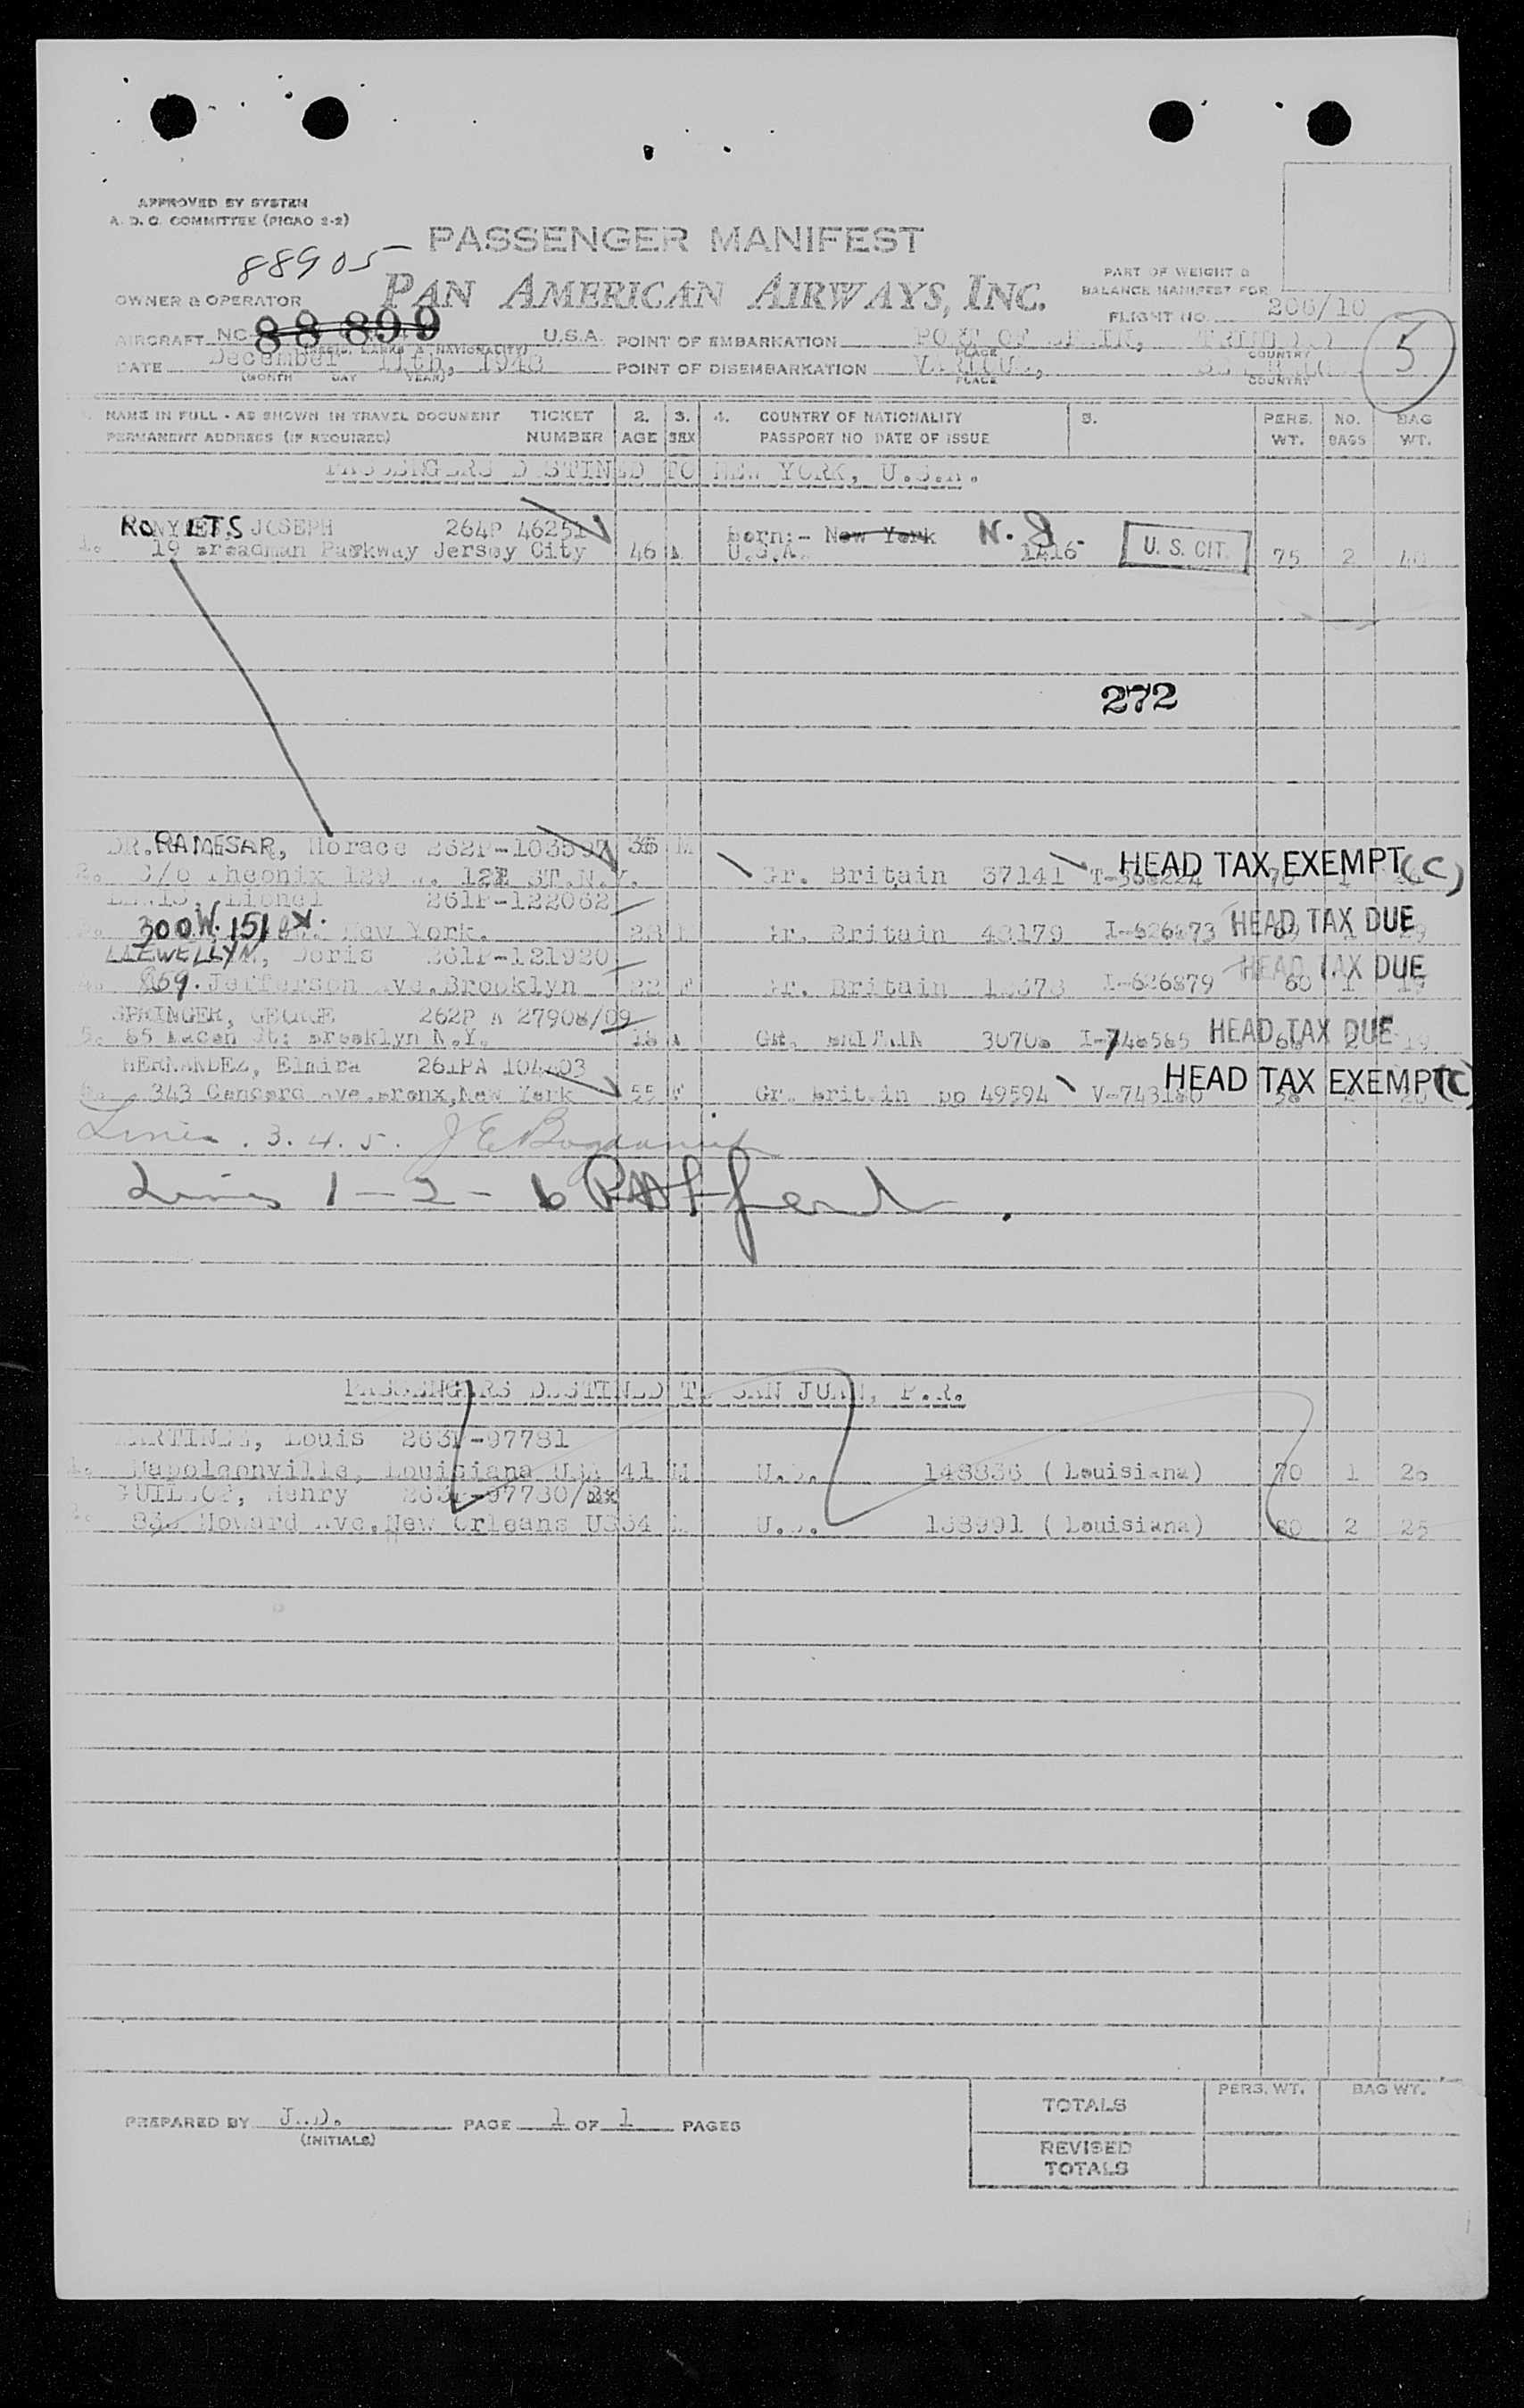 APPROVED BY SYSTEM
A. D. C. COMMITTEE (PICAO 2-2)
88905
PASSENGER MANIFEST
PAN AMERICAN AIRWAYS, INC.
OWNER & OPERATOR
PART OF WEIGHT &
BALANCE MANIFEST FOR
FLIGHT NO. 206/10
AIRCRAFT NC- 88899 U.S.A. POINT OF EMBARKATION PORT OF SPAIN, TRINIDAD
(REGIS. MARKS & NATIONALITY) PLACE COUNTRY
DATE December 11th, 1948 POINT OF DISEMBARKATION VARIOUS,
(MONTH DAY YEAR) PLACE COUNTRY
5
NAME IN FULL - AS SHOWN IN TRAVEL DOCUMENT TICKET 2. 3. 4. COUNTRY OF NATIONALITY 5. PERS. NO. BAG
PERMANENT ADDRESS (IF REQUIRED) NUMBER AGE SEX PASSPORT NO DATE OF ISSUE WT. BAGS WT.
PASSENGERS DESTINED TO NEW YORK, U.S.A.
JOSEPH 264P 46251 Born:- New York N. J.
1. 19 Parkway Jersey City 46 U.S.A. 1416 U. S. CIT. 75 2 40
272
DR. RAMESAR, Horace 262P-103597 36 M
2. C/o 129 W. ST. N.Y. Gr. Britain 37141 HEAD TAX EXEMPT (C)
Lionel 261P-122062
300 W. 151 New York. Gr. Britain 48179 I-626873 HEAD TAX DUE
LLEWELLYN, Doris 261P-121920
859. Jefferson Ave. Brooklyn 22 F Gr. Britain I-626879 HEAD TAX DUE 60 1 17
SPRINGER, GEORGE 262P A 27908/09
5. 85 Macon St; Brooklyn N.Y. 18 Gt. BRITAIN 30708 I-746585 HEAD TAX DUE
HERNANDEZ, Elmira 261PA
6. 343 Concord Ave. Bronx, New York 55 F Gr. Britain pp 49594 V-743180 HEAD TAX EXEMPT (C)
Lines. 3. 4. 5.
Lines 1 - 2 - 6
PASSENGERS DESTINED TO SAN JUAN, P.R.
MARTINEZ, Louis 263P-97781
1. Napoleonville, Louisiana USA 41 M U.S. 148836 (Louisiana) 70 1 20
Henry 263P-97780/
2. Howard Ave. New Orleans US 34 U.S. 138991 (Louisiana) 80 2 25
PREPARED BY J.D. PAGE 1 OF 1 PAGES
(INITIALS)
PERS. WT. BAG WT.
TOTALS
REVISED
TOTALS